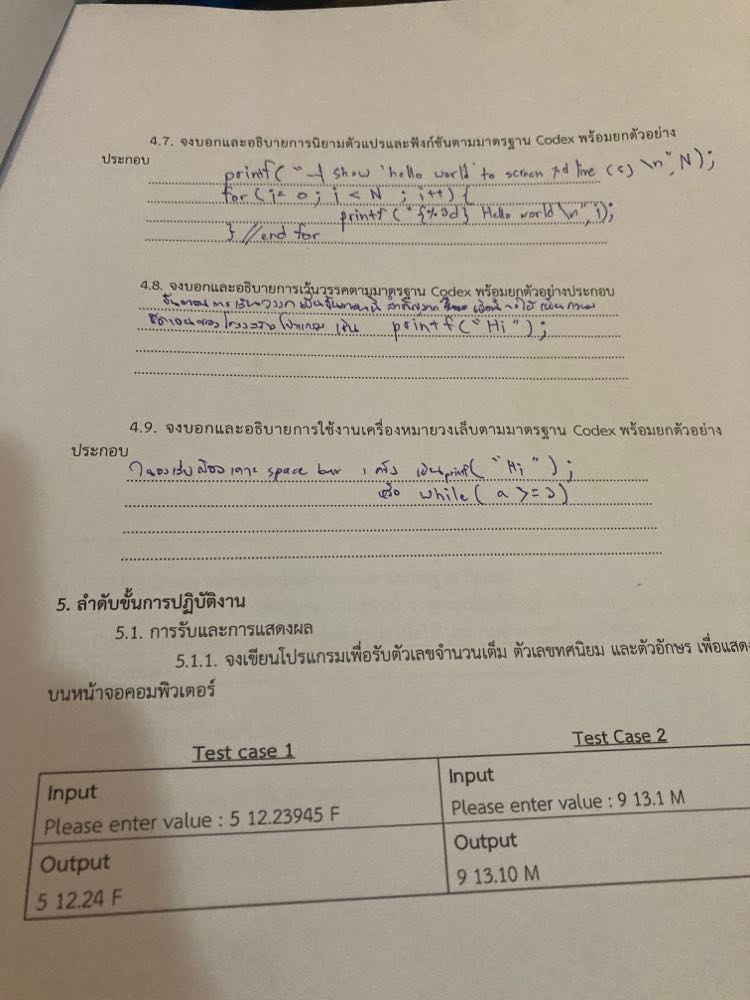 4.7. จงบอกและอธิบายการนิยามตัวแปรและฟังก์ชันตามมาตรฐาน Codex พร้อมยกตัวอย่าง
ประกอบ
printf( " show 'hello world' to screen %d line (s) \n", N);
for (i= 0; i < N ; i++) {
printf (" {%3d} Hello world \n", i);
} //end for
4.8. จงบอกและอธิบายการเว้นวรรคตามมาตรฐาน Codex พร้อมยกตัวอย่างประกอบ
โปรแกรม เช่น printf( "Hi" );
4.9. จงบอกและอธิบายการใช้งานเครื่องหมายวงเล็บตามมาตรฐาน Codex พร้อมยกตัวอย่าง
ประกอบ
ในวงเล็บต้องเคาะ space bar 1 ครั้ง เช่น printf( "Hi" );
หรือ while( a >= 3)
5. ลำดับขั้นการปฏิบัติงาน
5.1. การรับและการแสดงผล
5.1.1. จงเขียนโปรแกรมเพื่อรับตัวเลขจำนวนเต็ม ตัวเลขทศนิยม และตัวอักษร เพื่อแสดง
บนหน้าจอคอมพิวเตอร์
Test case 1 Test Case 2
Input Input
Please enter value : 5 12.23945 F Please enter value : 9 13.1 M
Output Output
5 12.24 F 9 13.10 M